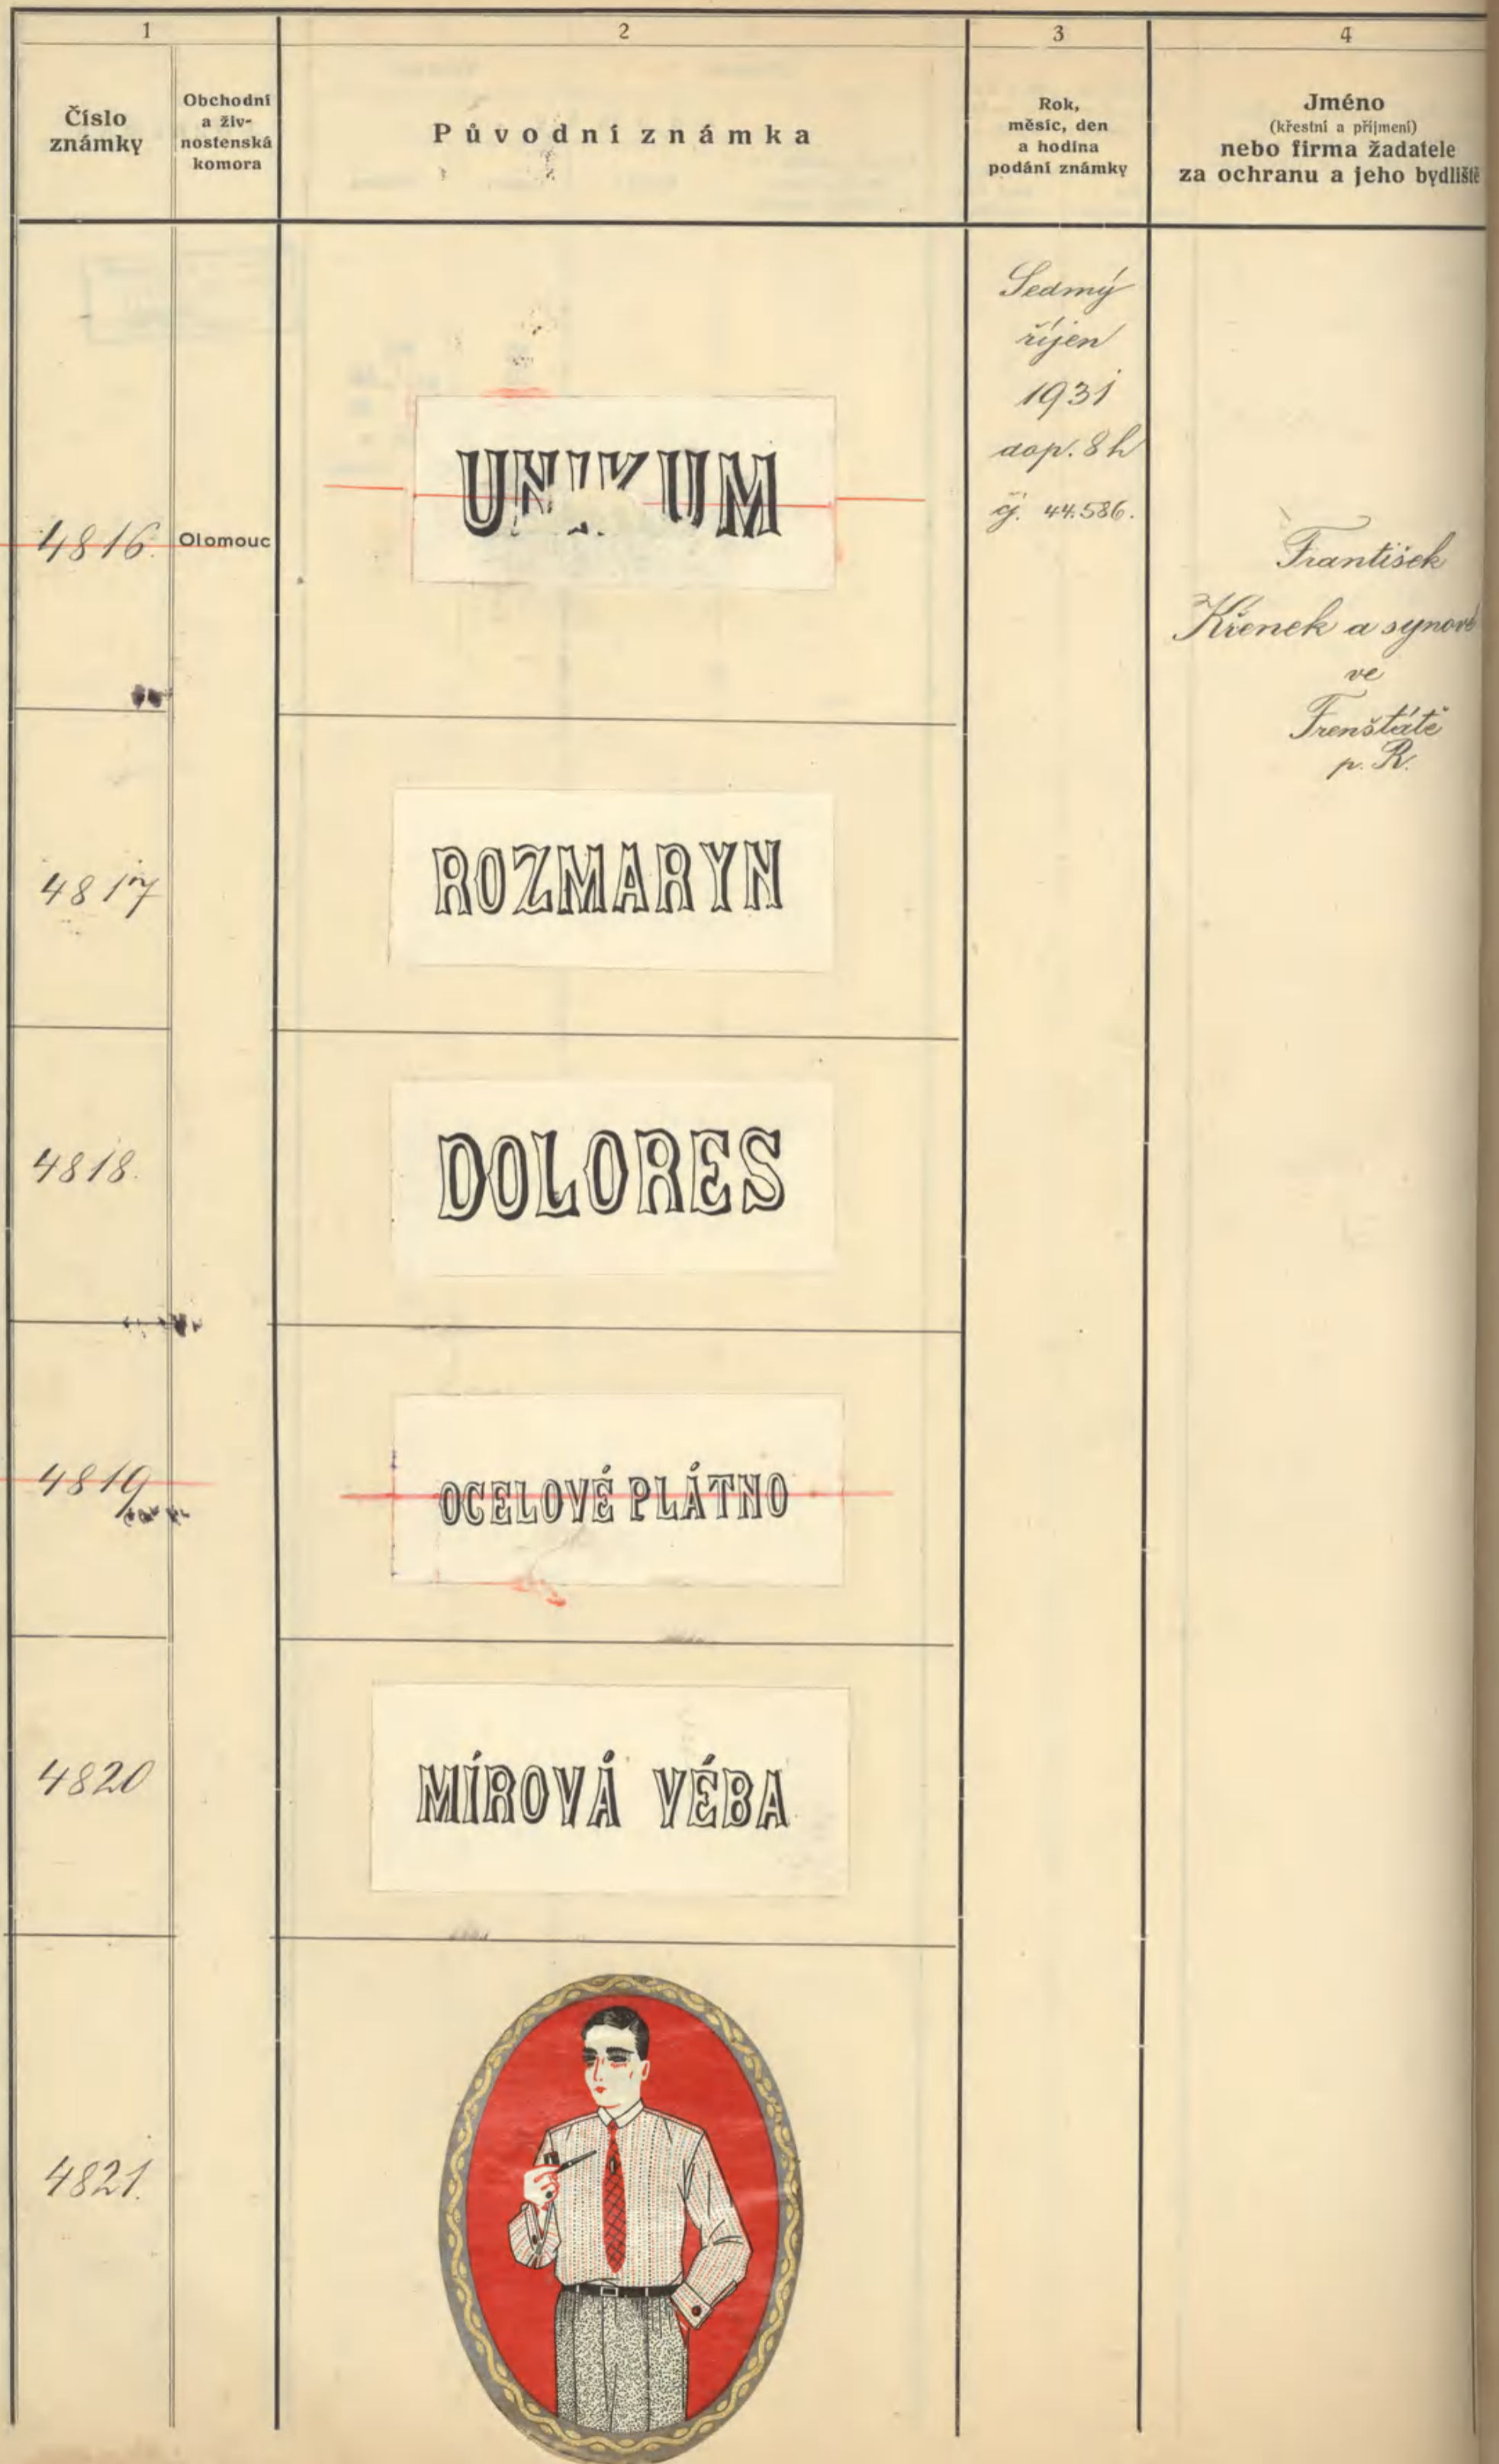 1
2
3
4
Číslo
známky
Obchodní
a živ-
nostenská
komora
Původní známka
Rok,
měsíc, den
a hodina
podání známky
Jméno
(křestní a příjmení)
nebo firma žadatele
za ochranu a jeho bydliště
4816.
Olomouc
UNIKUM
Sedmý
říjen
1931
dop. 8 h
čj. 44.586.
František
Křenek a synové
ve
Frenštátě
p. R.
4817
ROZMARYN
4818.
DOLORES
4819
OCELOVÉ PLÁTNO
4820
MÍROVÁ VÉBA
4821.